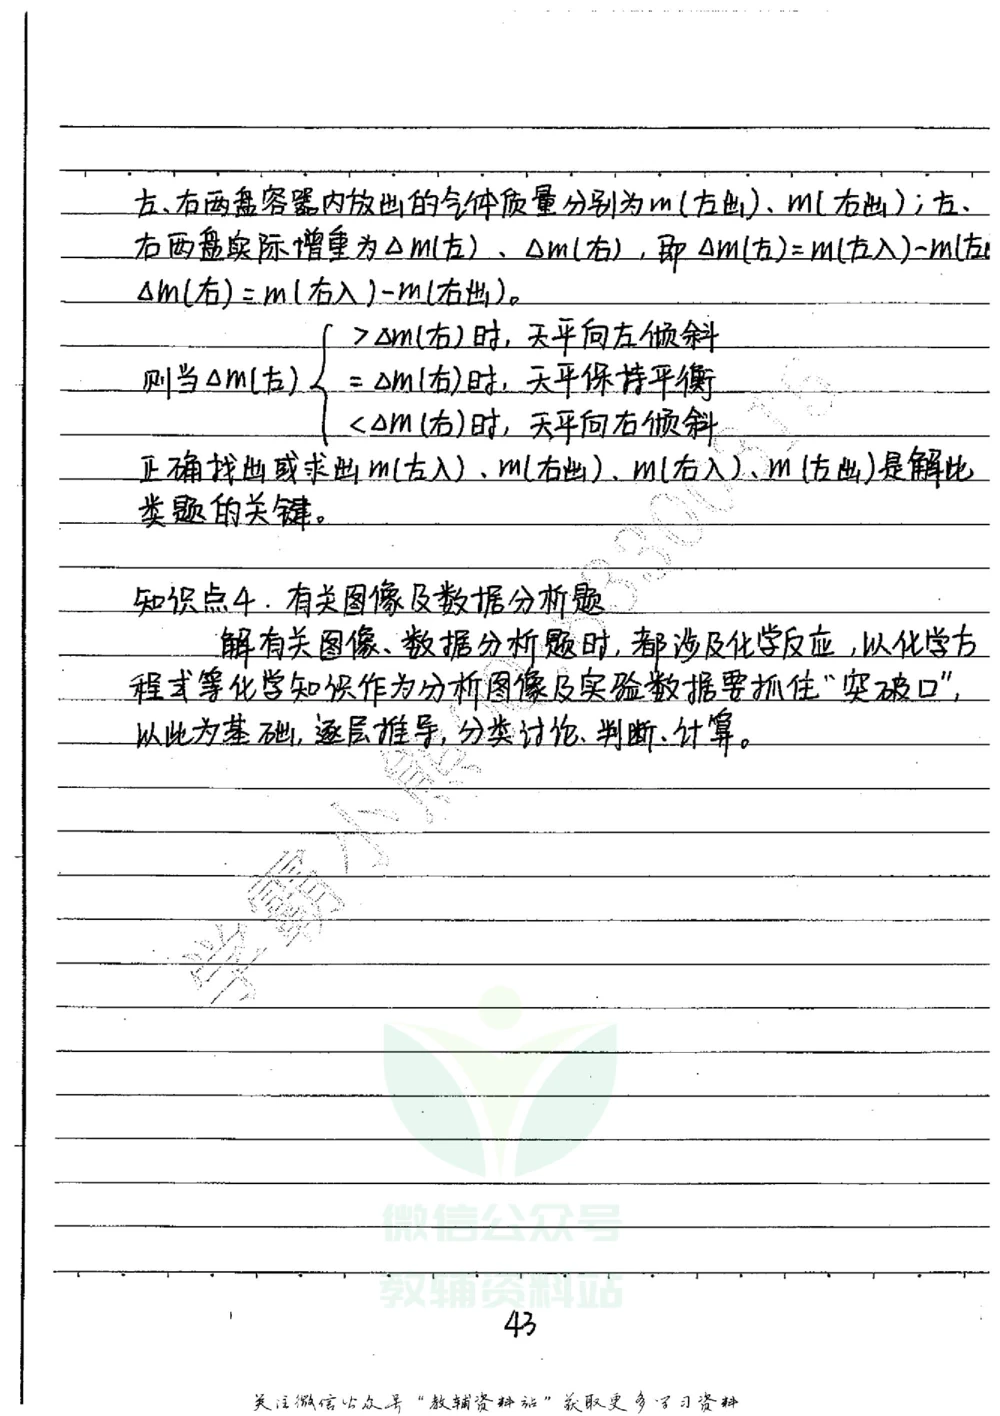 左、右两盘容器内放出的气体质量分别为m(左出)、m(右出)；左、
右两盘实际增重为Δm(左)、Δm(右)，即Δm(左)=m(左入)-m(左
Δm(右)=m(右入)-m(右出)。
>Δm(右)时，天平向左倾斜
则当Δm(左) =Δm(右)时，天平保持平衡
<Δm(右)时，天平向右倾斜
正确找出或求出m(左入)、m(右出)、m(右入)、m(左出)是解此
类题的关键。
知识点4.有关图像及数据分析题
解有关图像、数据分析题时，都涉及化学反应，以化学方
程式等化学知识作为分析图像及实验数据要抓住“突破口”，
以此为基础，逐层推导，分类讨论、判断、计算。
学霸小熊
微信公众号
教辅资料站
43
关注微信公众号“教辅资料站”获取更多学习资料